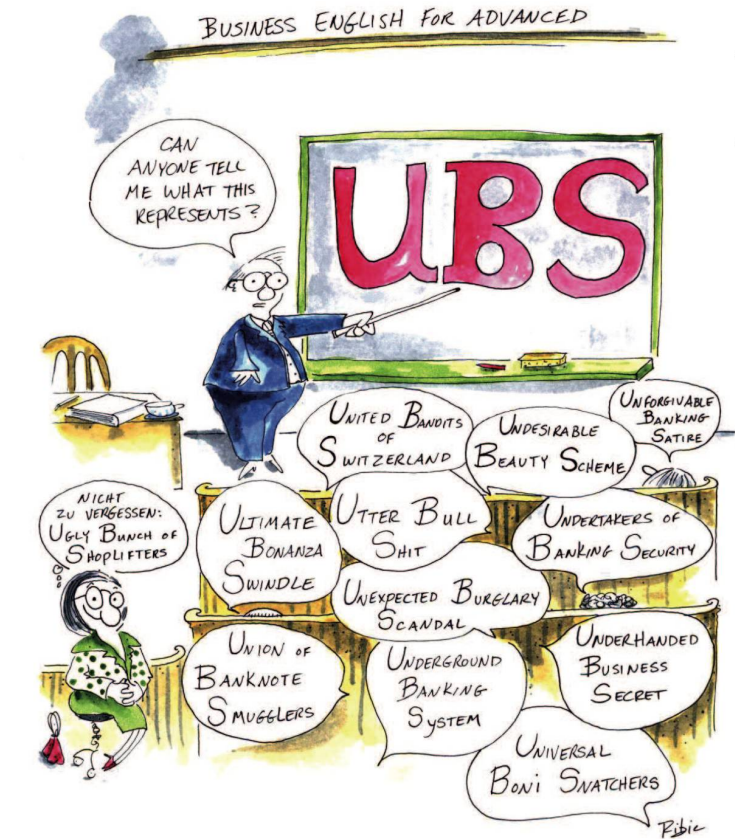 BUSINESS ENGLISH FOR ADVANCED
CAN
ANYONE TELL
ME WHAT THIS
REPRESENTS?
UBS
UNITED BANDITS
OF
SWITZERLAND
UNDESIRABLE
BEAUTY SCHEME
UNFORGIVABLE
BANKING
SATIRE
NICHT
ZU VERGESSEN:
UGLY BUNCH OF
SHOPLIFTERS
ULTIMATE
BONANZA
SWINDLE
UTTER BULL
SHIT
UNDERTAKERS OF
BANKING SECURITY
UNEXPECTED BURGLARY
SCANDAL
UNION OF
BANKNOTE
SMUGGLERS
UNDERGROUND
BANKING
SYSTEM
UNDERHANDED
BUSINESS
SECRET
UNIVERSAL
BONI SNATCHERS
Ribic